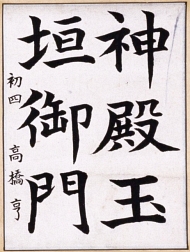 神殿玉
垣御門
初四 高橋亨